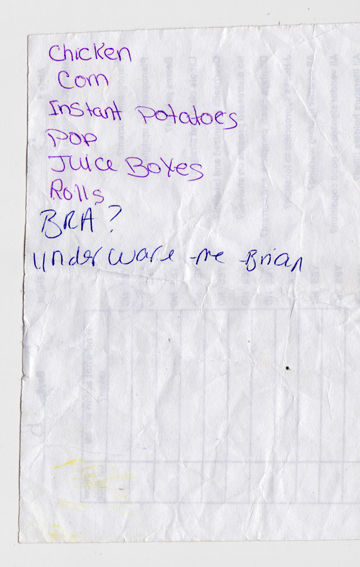 Chicken
Corn
Instant potatoes
POP
Juice Boxes
Rolls
BRA?
underware -me -Brian